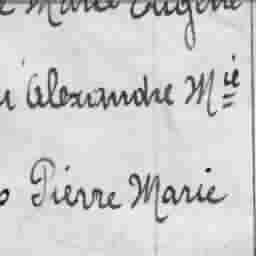 Marie Eugène
Alexandre Mie
Pierre Marie